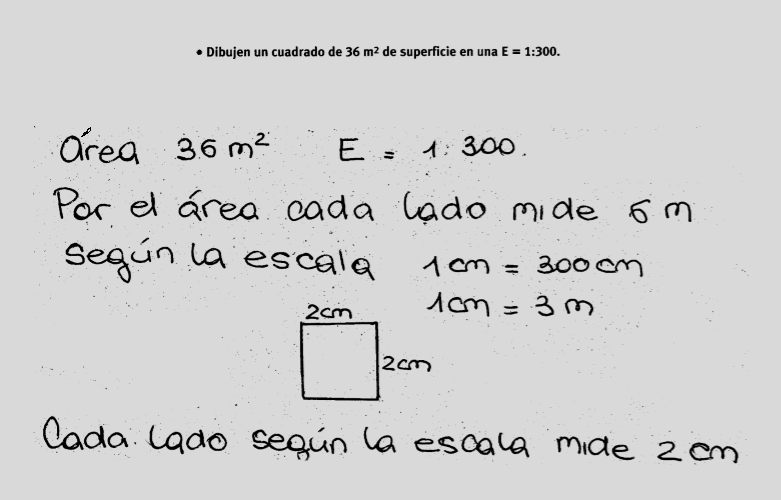 • Dibujen un cuadrado de 36 m² de superficie en una E = 1:300.
Área 36 m² E = 1:300.
Por el área cada lado mide 6 m
Según la escala 1cm = 300cm
1cm = 3 m
2cm
2cm
Cada lado según la escala mide 2cm